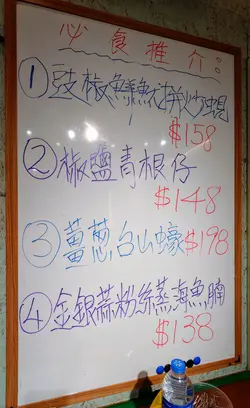 必食推介：
①豉椒鮮魷拼炒蜆
$158
②椒鹽青根仔
$148
③薑葱台山蠔$198
④金銀蒜粉絲蒸海魚腩
$138